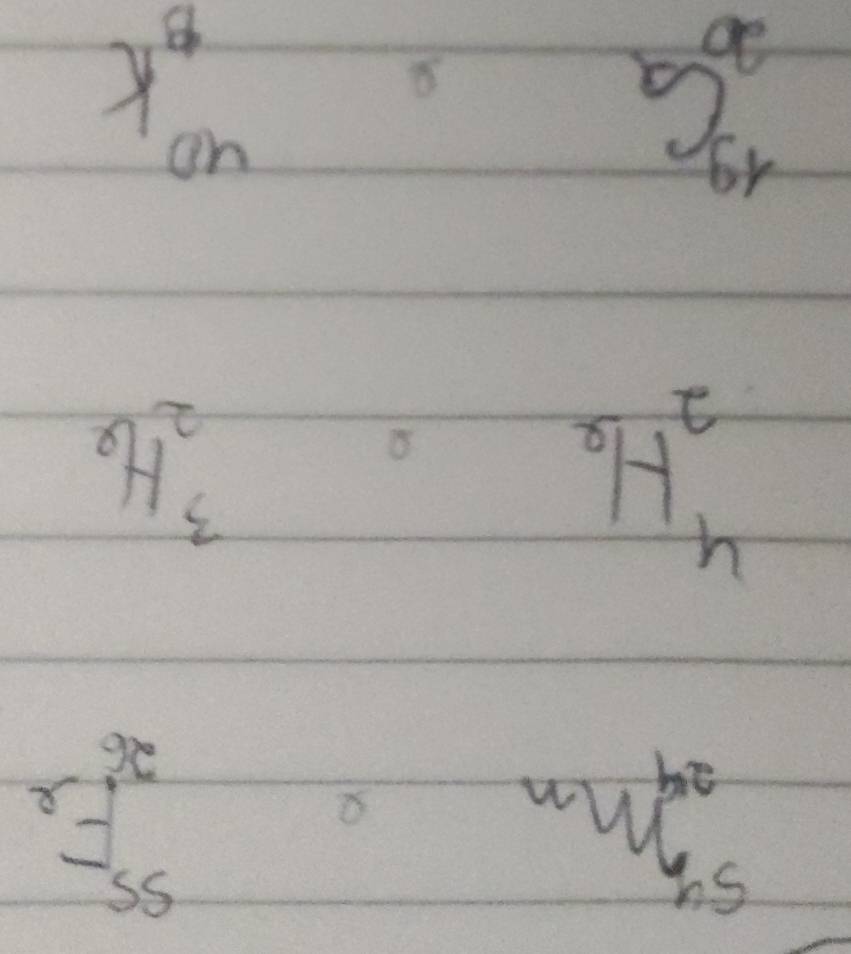 54 24 Mn e 55 26 Fe
4 2 He e 3 2 He
19 20 Ca e 40 K